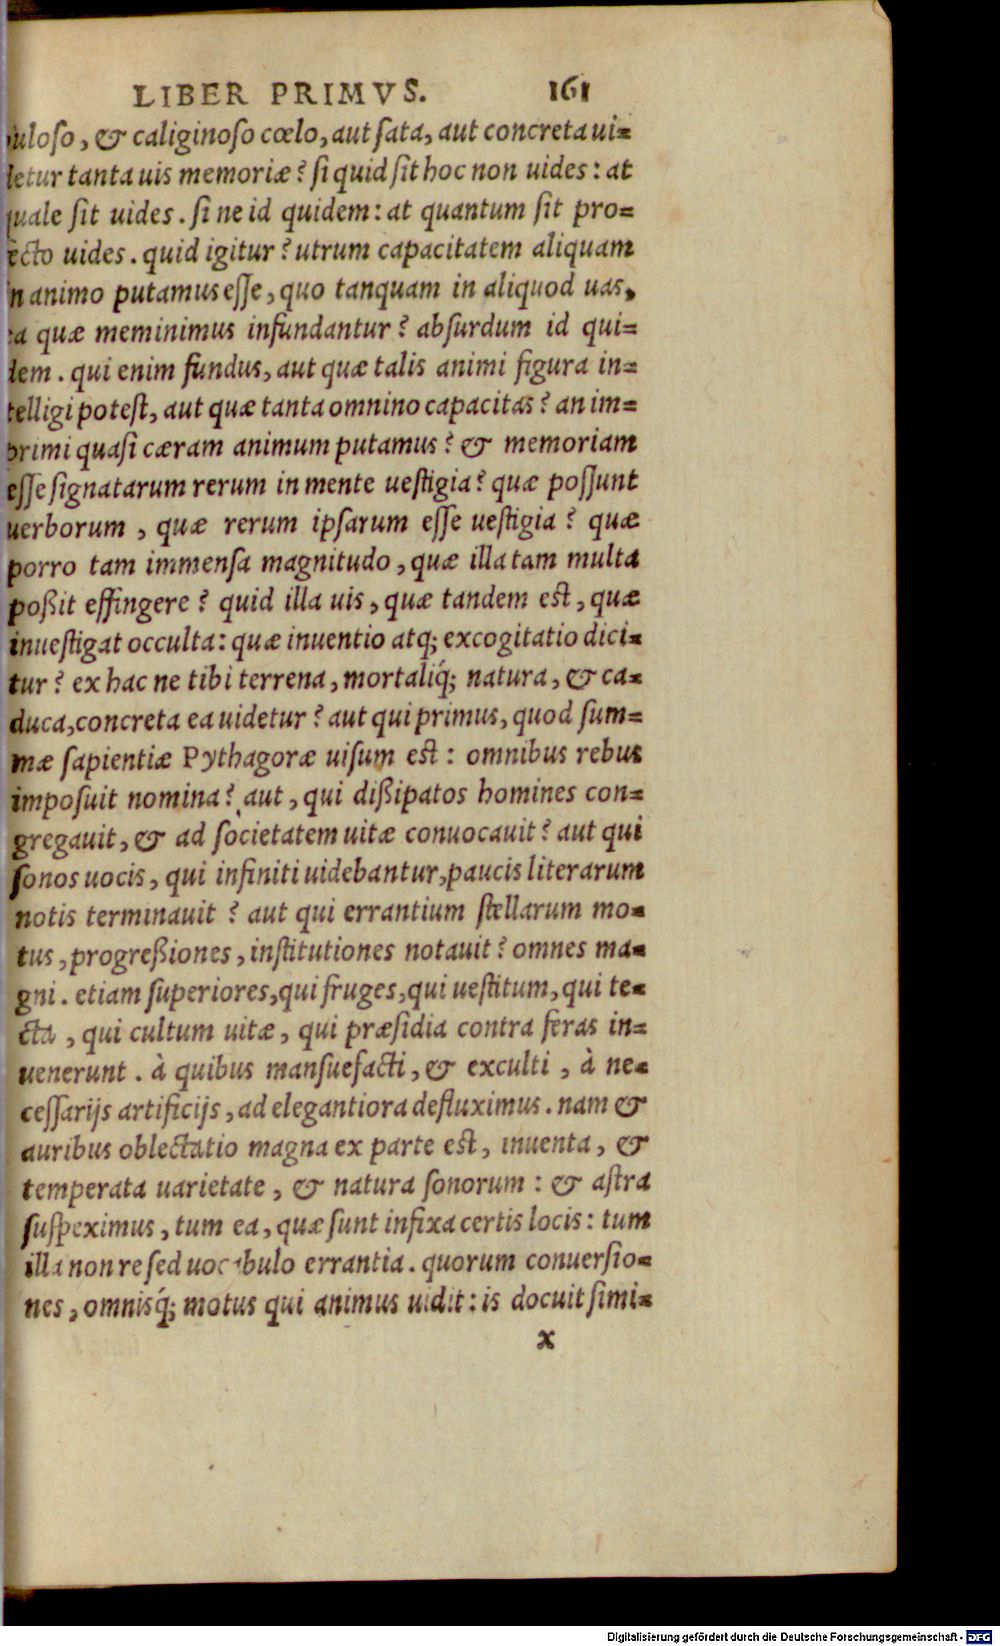 LIBER PRIMVS. 161
uloso, & caliginoso cœlo, aut sata, aut concreta ui=
detur tanta uis memoriæ? si quid sit hoc non uides: at
quale sit uides. si ne id quidem: at quantum sit pro=
fecto uides. quid igitur? utrum capacitatem aliquam
in animo putamus esse, quo tanquam in aliquod uas,
ea quæ meminimus infundantur? absurdum id qui=
dem. qui enim fundus, aut quæ talis animi figura in=
telligi potest, aut quæ tanta omnino capacitas? an im=
primi quasi cæram animum putamus? & memoriam
esse signatarum rerum in mente uestigia? quæ possunt
uerborum, quæ rerum ipsarum esse uestigia? quæ
porro tam immensa magnitudo, quæ illa tam multa
poßit effingere? quid illa uis, quæ tandem est, quæ
inuestigat occulta: quæ inuentio atq; excogitatio dici=
tur? ex hac ne tibi terrena, mortaliq́; natura, & ca=
duca, concreta ea uidetur? aut qui primus, quod sum=
mæ sapientiæ Pythagoræ uisum est: omnibus rebus
imposuit nomina? aut, qui dißipatos homines con=
gregauit, & ad societatem uitæ conuocauit? aut qui
sonos uocis, qui infiniti uidebantur, paucis literarum
notis terminauit? aut qui errantium stellarum mo=
tus, progreßiones, institutiones notauit? omnes ma=
gni. etiam superiores, qui fruges, qui uestitum, qui te=
cta, qui cultum uitæ, qui præsidia contra feras in=
uenerunt. à quibus mansuefacti, & exculti, à ne=
cessarijs artificijs, ad elegantiora defluximus. nam &
auribus oblectatio magna ex parte est, inuenta, &
temperata uarietate, & natura sonorum: & astra
suspeximus, tum ea, quæ sunt infixa certis locis: tum
illa non re sed uocabulo errantia. quorum conuersio=
nes, omnisq́; motus qui animus uidit: is docuit simi=
x
Digitalisierung gefördert durch die Deutsche Forschungsgemeinschaft - DFG